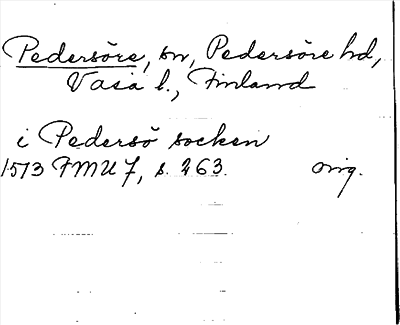 Pedersöre, sn, Pedersöre hd,
Vasa l., Finland
i Pedersö socken
1513 FMU 7, s. 263. orig.